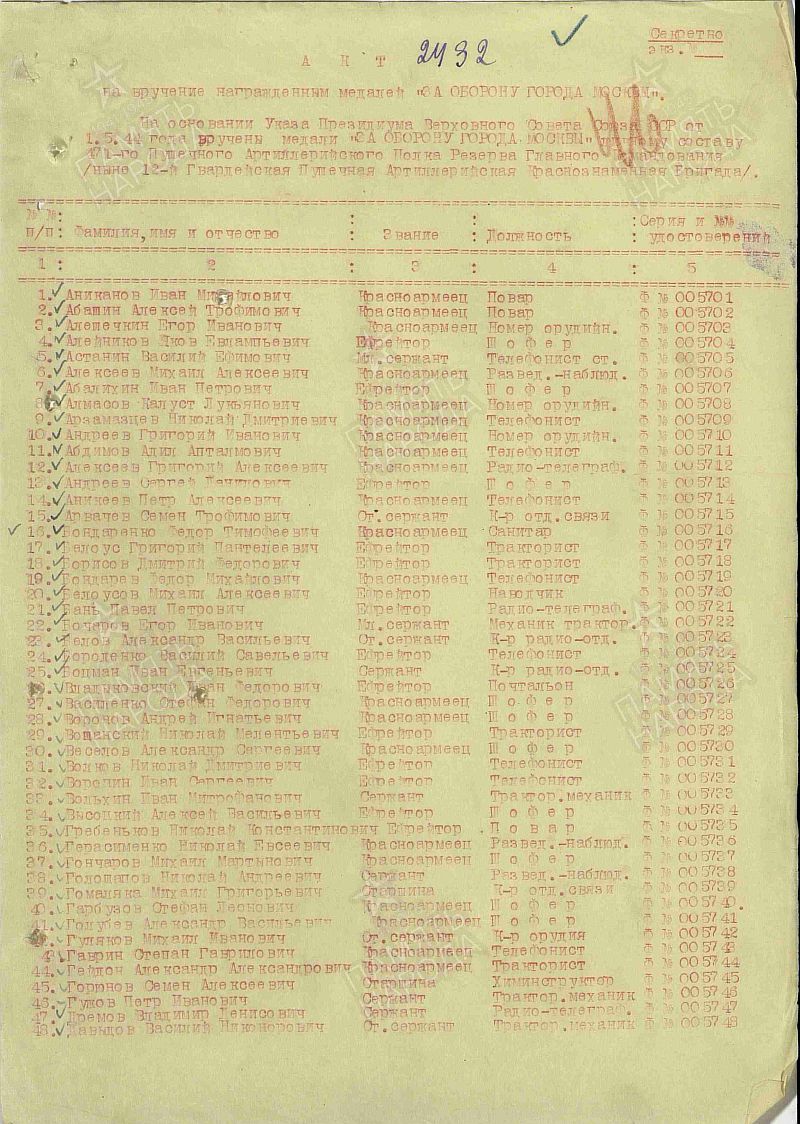 Секретно
экз.№
2432
А К Т
на вручение награжденным медалей "ЗА ОБОРОНУ ГОРОДА МОСКВЫ".
На основании Указа Президиума Верховного Совета Союза ССР от
1.5.44 года вручены медали "ЗА ОБОРОНУ ГОРОДА МОСКВЫ" личному составу
471-го Пушечного Артиллерийского Полка Резерва Главного Командования
/ныне 12-й Гвардейская Пушечная Артиллерийская Краснознаменная Бригада/.
№ №: : : :Серия и №№
п/п: Фамилия,имя и отчество : Звание : Должность : удостоверений
1 : 2 : 3 : 4 : 5
1. Аниканов Иван Михайлович Красноармеец Повар Ф № 005701
2. Абашин Алексей Трофимович Красноармеец Повар Ф № 005702
3. Алешечкин Егор Иванович Красноармеец Номер орудийн. Ф № 005703
4. Алейников Яков Евлампьевич Ефрейтор Ш о ф е р Ф № 005704
5. Астанин Василий Ефимович Мл.сержант Телефонист ст. Ф № 005705
6. Алексеев Михаил Алексеевич Красноармеец Развед.-наблюд. Ф № 005706
7. Абалихин Иван Петрович Ефрейтор Ш о ф е р Ф № 005707
8. Алмасов Калуст Лукьянович Красноармеец Номер орудийн. Ф № 005708
9. Арзамазцев Николай Дмитриевич Красноармеец Телефонист Ф № 005709
10. Андреев Григорий Иванович Красноармеец Номер орудийн. Ф № 005710
11. Абдимов Адил Апталмович Красноармеец Телефонист Ф № 005711
12. Алексеев Григорий Алексеевич Красноармеец Радио-телеграф. Ф № 005712
13. Андреев Сергей Денисович Ефрейтор Ш о ф е р Ф № 005713
14. Аникеев Петр Алексеевич Красноармеец Телефонист Ф № 005714
15. Арвачев Семен Трофимович Ст.сержант К-р отд.связи Ф № 005715
16. Бондаренко Федор Тимофеевич Красноармеец Санитар Ф № 005716
17. Белоус Григорий Пантелеевич Ефрейтор Тракторист Ф № 005717
18. Борисов Дмитрий Федорович Ефрейтор Тракторист Ф № 005718
19. Бондарев Федор Михайлович Красноармеец Телефонист Ф № 005719
20. Белоусов Михаил Алексеевич Ефрейтор Наводчик Ф № 005720
21. Бань Павел Петрович Ефрейтор Радио-телеграф. Ф № 005721
22. Бочаров Егор Иванович Мл.сержант Механик трактор. Ф № 005722
23. Белов Александр Васильевич Ст.сержант К-р радио-отд. Ф № 005723
24. Бороденко Василий Савельевич Ефрейтор Телефонист Ф № 005724
25. Боцман Иван Евгеньевич Сержант К-р радио-отд. Ф № 005725
26. Владыковский Иван Федорович Ефрейтор Почтальон Ф № 005726
27. Василенко Стефан Федорович Красноармеец Ш о ф е р Ф № 005727
28. Воронов Андрей Игнатьевич Красноармеец Ш о ф е р Ф № 005728
29. Вощанский Николай Мелентьевич Ефрейтор Тракторист Ф № 005729
30. Веселов Александр Сергеевич Красноармеец Ш о ф е р Ф № 005730
31. Волков Николай Дмитриевич Ефрейтор Телефонист Ф № 005731
32. Воронин Иван Сергеевич Ефрейтор Телефонист Ф № 005732
33. Вольхин Иван Митрофанович Сержант Трактор.механик Ф № 005733
34. Высоцкий Алексей Васильевич Ефрейтор Ш о ф е р Ф № 005734
35. Гребеньков Николай Константинович Ефрейтор П о в а р Ф № 005735
36. Герасименко Николай Евсеевич Красноармеец Развед.-наблюд. Ф № 005736
37. Гончаров Михаил Мартынович Красноармеец Ш о ф е р Ф № 005737
38. Голощапов Николай Андреевич Сержант Развед.-наблюд. Ф № 005738
39. Гомаляка Михаил Григорьевич Старшина К-р отд.связи Ф № 005739
40. Гарбузов Стефан Леонович Красноармеец Ш о ф е р Ф № 005740.
41. Голубев Александр Васильевич Красноармеец Ш о ф е р Ф № 005741
42. Гуляков Михаил Иванович Ст.сержант К-р орудия Ф № 005742
43. Гаврин Степан Гаврилович Красноармеец Телефонист Ф № 005743
44. Гейдон Александр Александрович Красноармеец Тракторист Ф № 005744
45. Горюнов Семен Алексеевич Старшина Химинструктор Ф № 005745
46. Гужов Петр Иванович Сержант Трактор.механик Ф № 005746
47. Дремов Владимир Денисович Сержант Радио-телеграф. Ф № 005747
48. Давыдов Василий Никонорович Ст.сержант Трактор.механик Ф № 005748